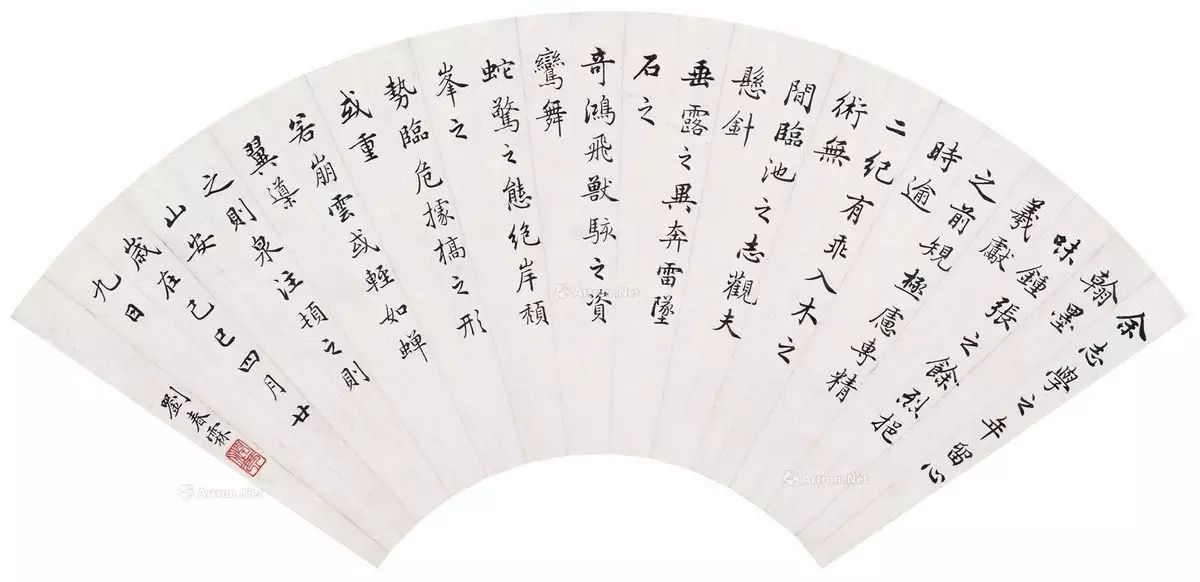 余志學之年留心
翰墨
味鍾張之餘烈挹
羲獻
之前規極慮專精
時逾
二紀有乖入木之
術無
間臨池之志觀夫
懸針
垂露之異奔雷墜
石之
奇鴻飛獸駭之資
鸞舞
蛇驚之態絕岸頹
峯之
勢臨危據槁之形
或重
若崩雲或輕如蟬
翼導
之則泉注頓之則
山安
歲在己巳四月廿
九日
劉春霖
Artron.Net
Artron.Net
Artron.Net